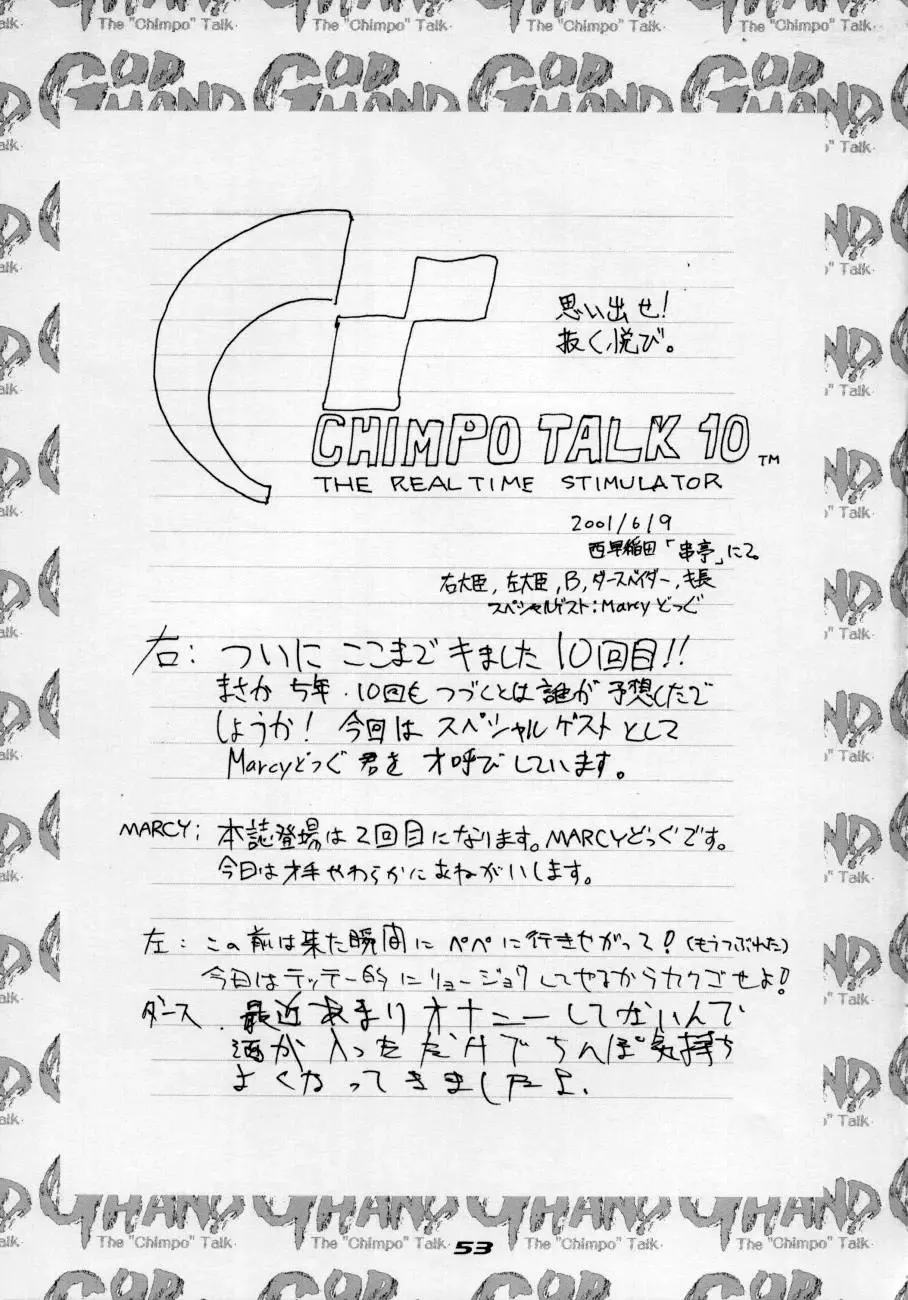 思い出せ!
抜く悦び。
CHIMPO TALK 10 TM
THE REALTIME STIMULATOR
2001/6/9
西早稲田「串亭」にて。
右大臣, 左大臣, B, ダースベイダー, 長
スペシャルゲスト:Marcyどっぐ
右: ついに ここまで キました 10回目!!
まさか 5年・10回も つづくとは 誰が 予想したで
しょうか! 今回は スペシャルゲスト として
Marcyどっぐ 君を オ呼びしています。
MARCY: 本誌登場は2回目になります。MARCYどっぐです。
今日はオ手やわらかにおねがいします。
左: この前は来た瞬間にペペに行きやがって! (もうつぶれた)
今日はテッテー的にリョージョクしてやるからカクゴせよ!
ダース. 最近あまりオナニーしてないんで
酒が入っただけでちんぽ気持ち
よくなってきましたよ.
GOD HAND
The "Chimpo" Talk
53